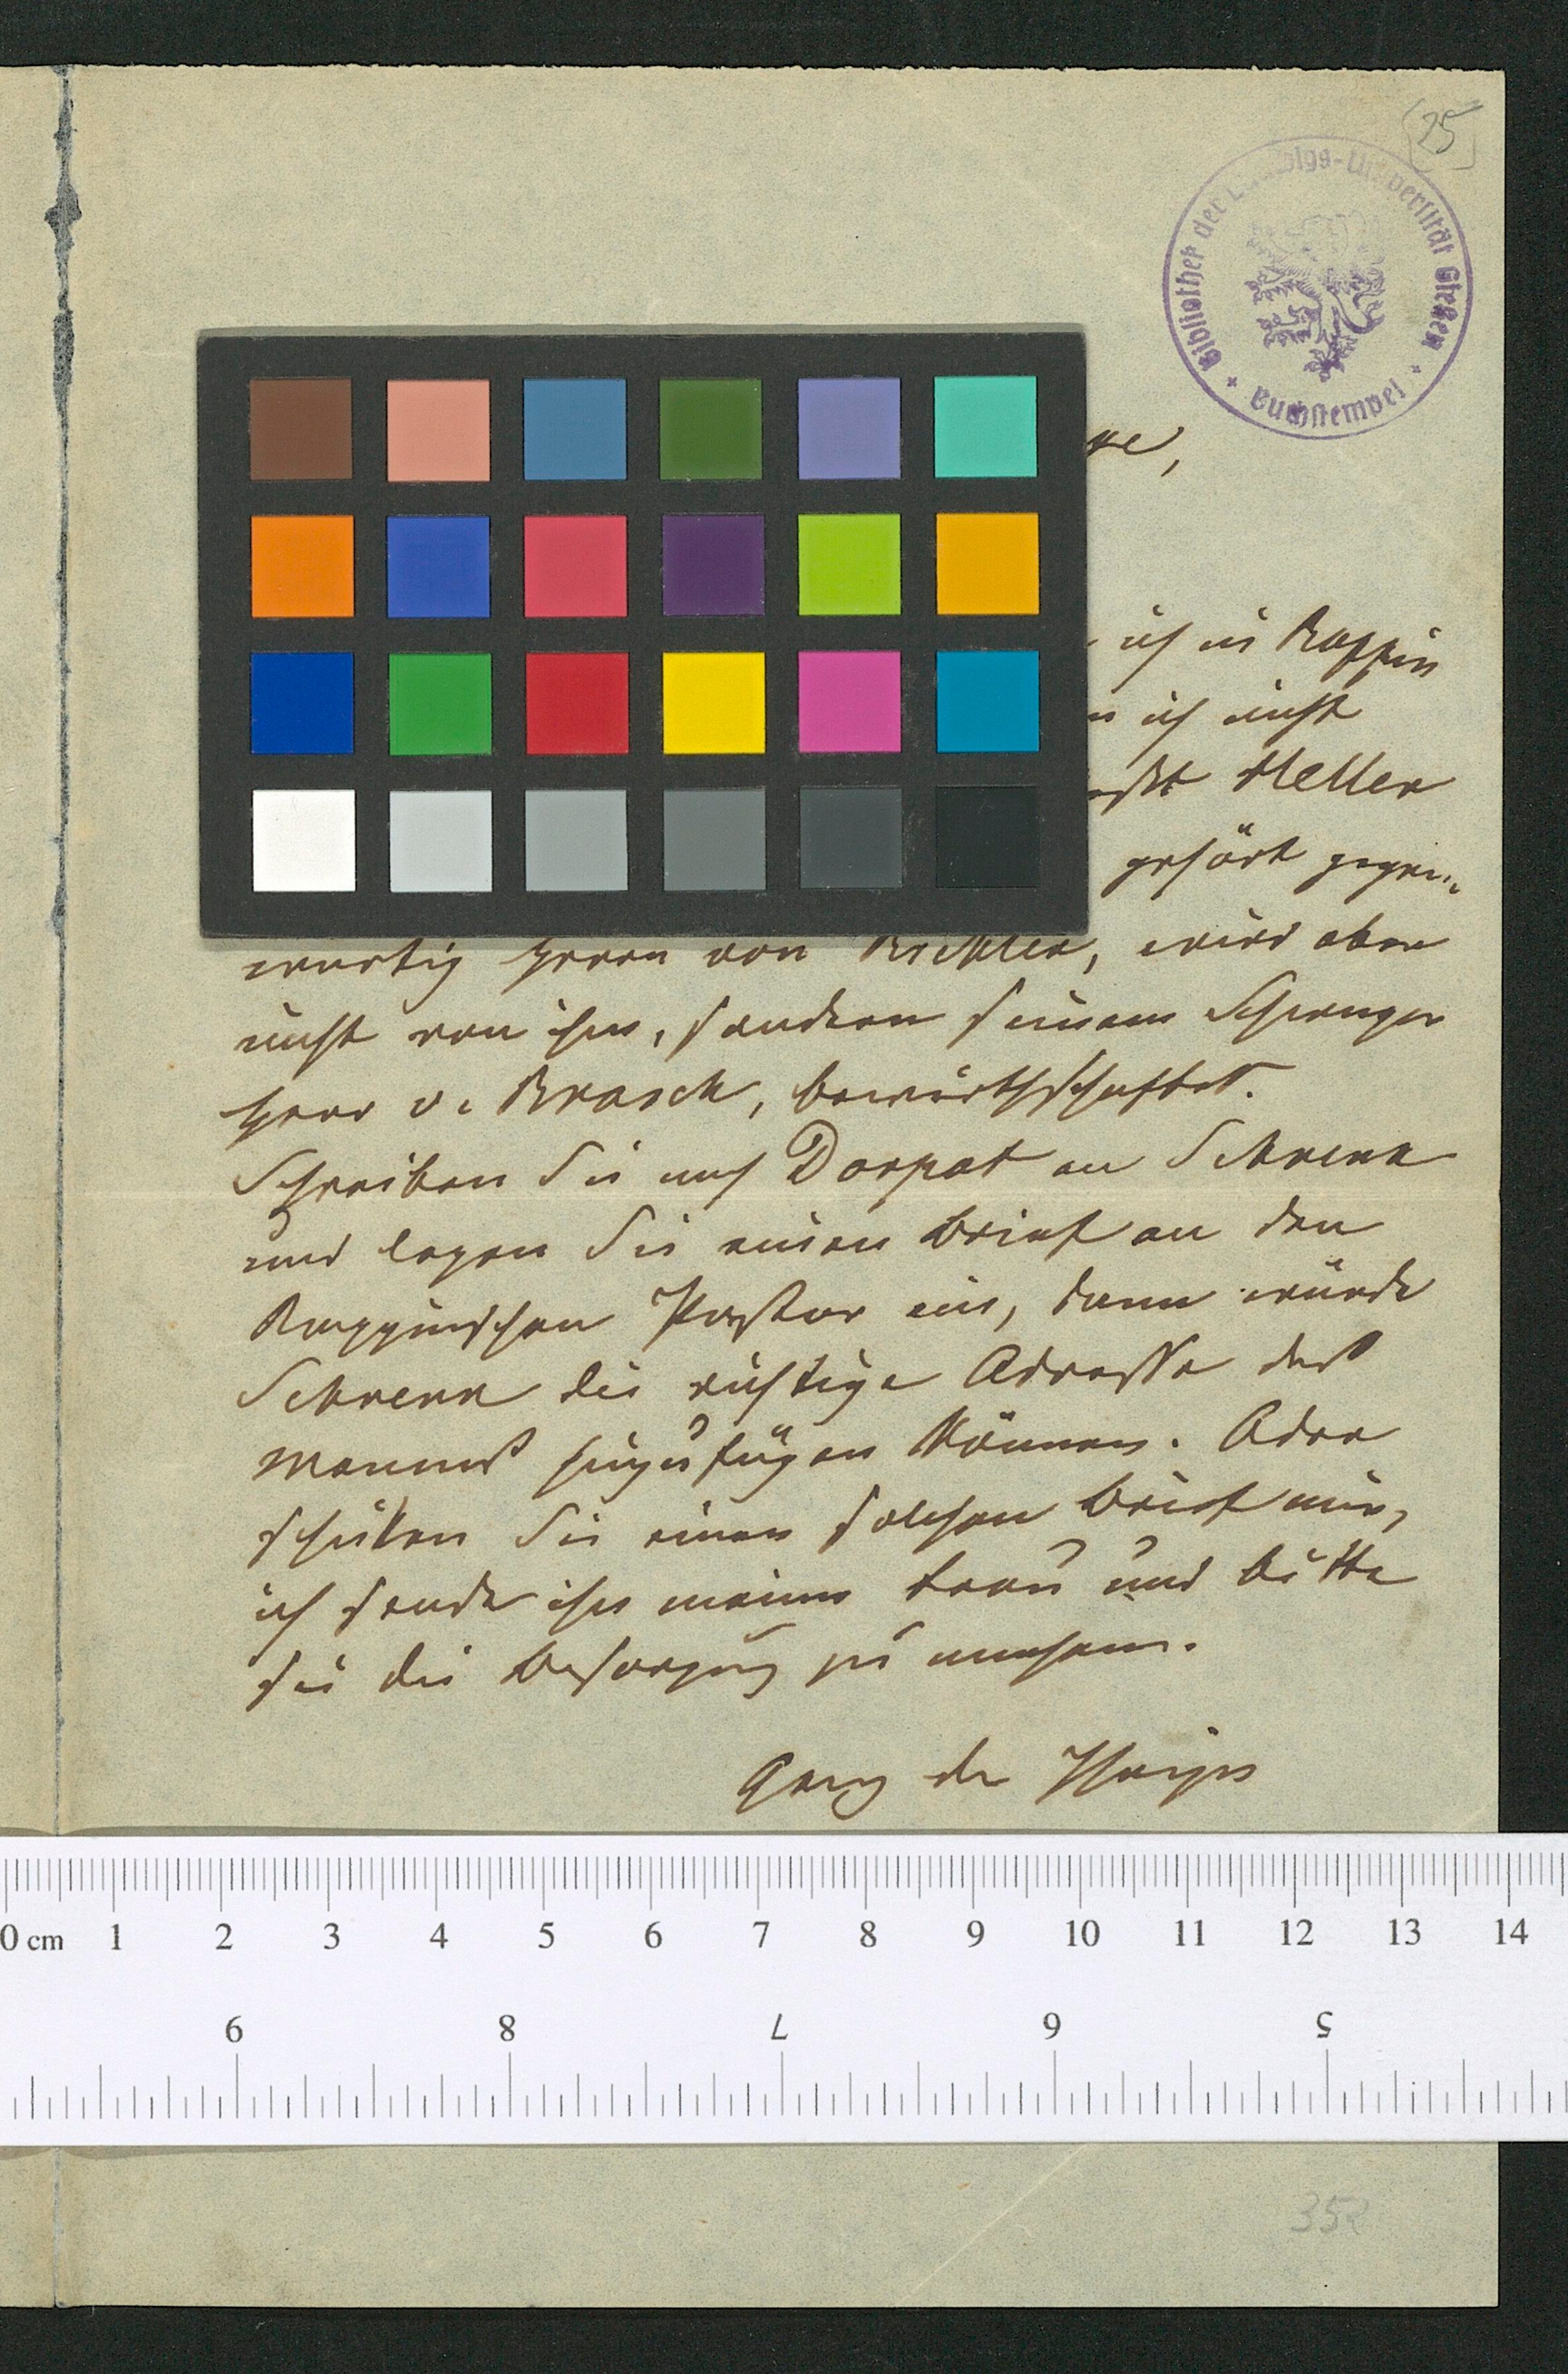 25
Bibliothek der Ludwigs-Universität Gießen
+ Buchstempel +
ich in Rappin
ich nicht
Meller
gehört gegen-
wärtig Herrn von Richter, wird aber
nicht von ihm, sondern seinem Schwager
Herr v. Brasch, bewirthschaftet.
Schreiben Sie nach Dorpat an Schrenk
und legen Sie einen Brief an den
Rappinschen Pastor ein, dann würde
Schrenk die richtige Adresse des
Mannes hinzufügen können. Oder
schicken Sie einen solchen Brief mir,
ich sende ihn meiner Frau und bitte
sie die Besorgung zu machen.
Ganz der Ihrige
0 cm 1 2 3 4 5 6 7 8 9 10 11 12 13 14
9 8 7 6 5
352